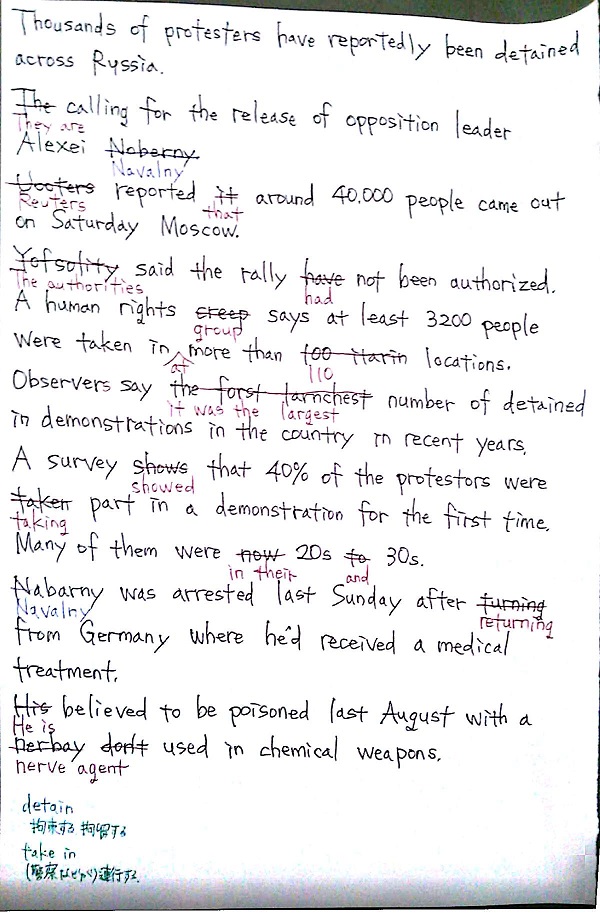 Thousands of protesters have reportedly been detained
across Ryssia.
The calling for the release of opposition leader
They are
Alexei Nabarny.
Navalny
Uooters reported it around 40.000 people came out
Reuters that
on Saturday Moscow.
Yofsolity said the rally have not been authorized.
The authorities had
A human rights creep says at least 3200 people
group
were taken in more than too itarin locations.
at 110
Observers say the forst larnchest number of detained
it was the largest
in demonstrations in the country in recent years.
A survey shows that 40% of the protestors were
showed
taken part in a demonstration for the first time.
taking
Many of them were now 20s to 30s.
in their and
Nabarny was arrested last Sunday after turning
Navalny returning
from Germany where he'd received a medical
treatment.
His believed to be poisoned last August with a
He is
nerbay don't used in chemical weapons.
nerve agent
detain
拘束する 拘留する
take in
(警察などが)連行する.